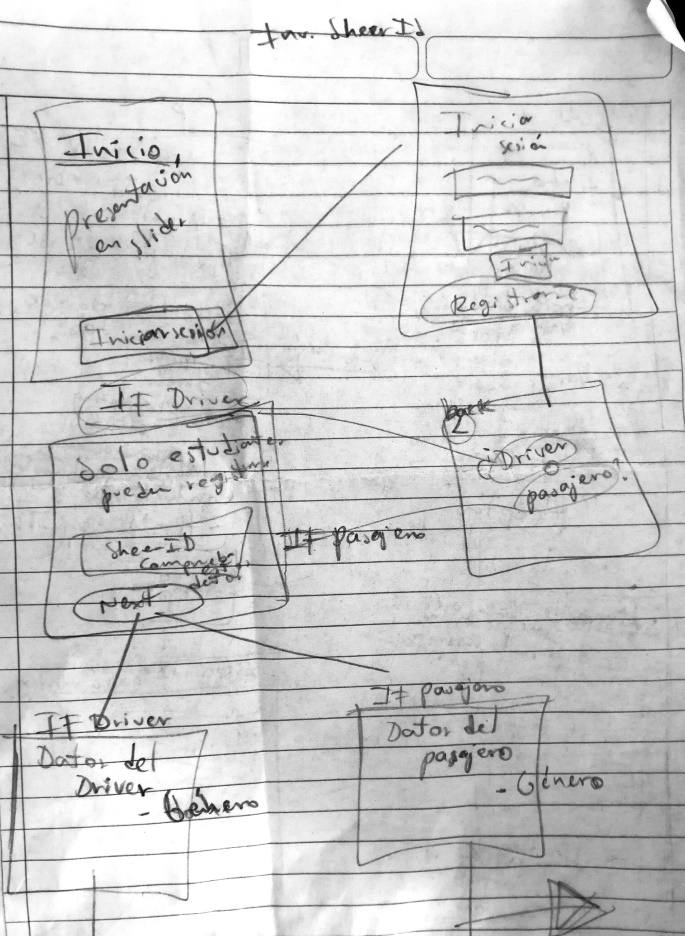 Inv. SheerId
Inicio
Presentación
en slider
Iniciar sesión
Iniciar
sesión
Registrarse
IF Driver
Solo estudiantes
pueden registrarse
SheerID
Next
IF pasajero
back
¿Driver
o
pasajero?
IF Driver
Datos del
Driver
- Género
IF pasajero
Datos del
pasajero
- Género